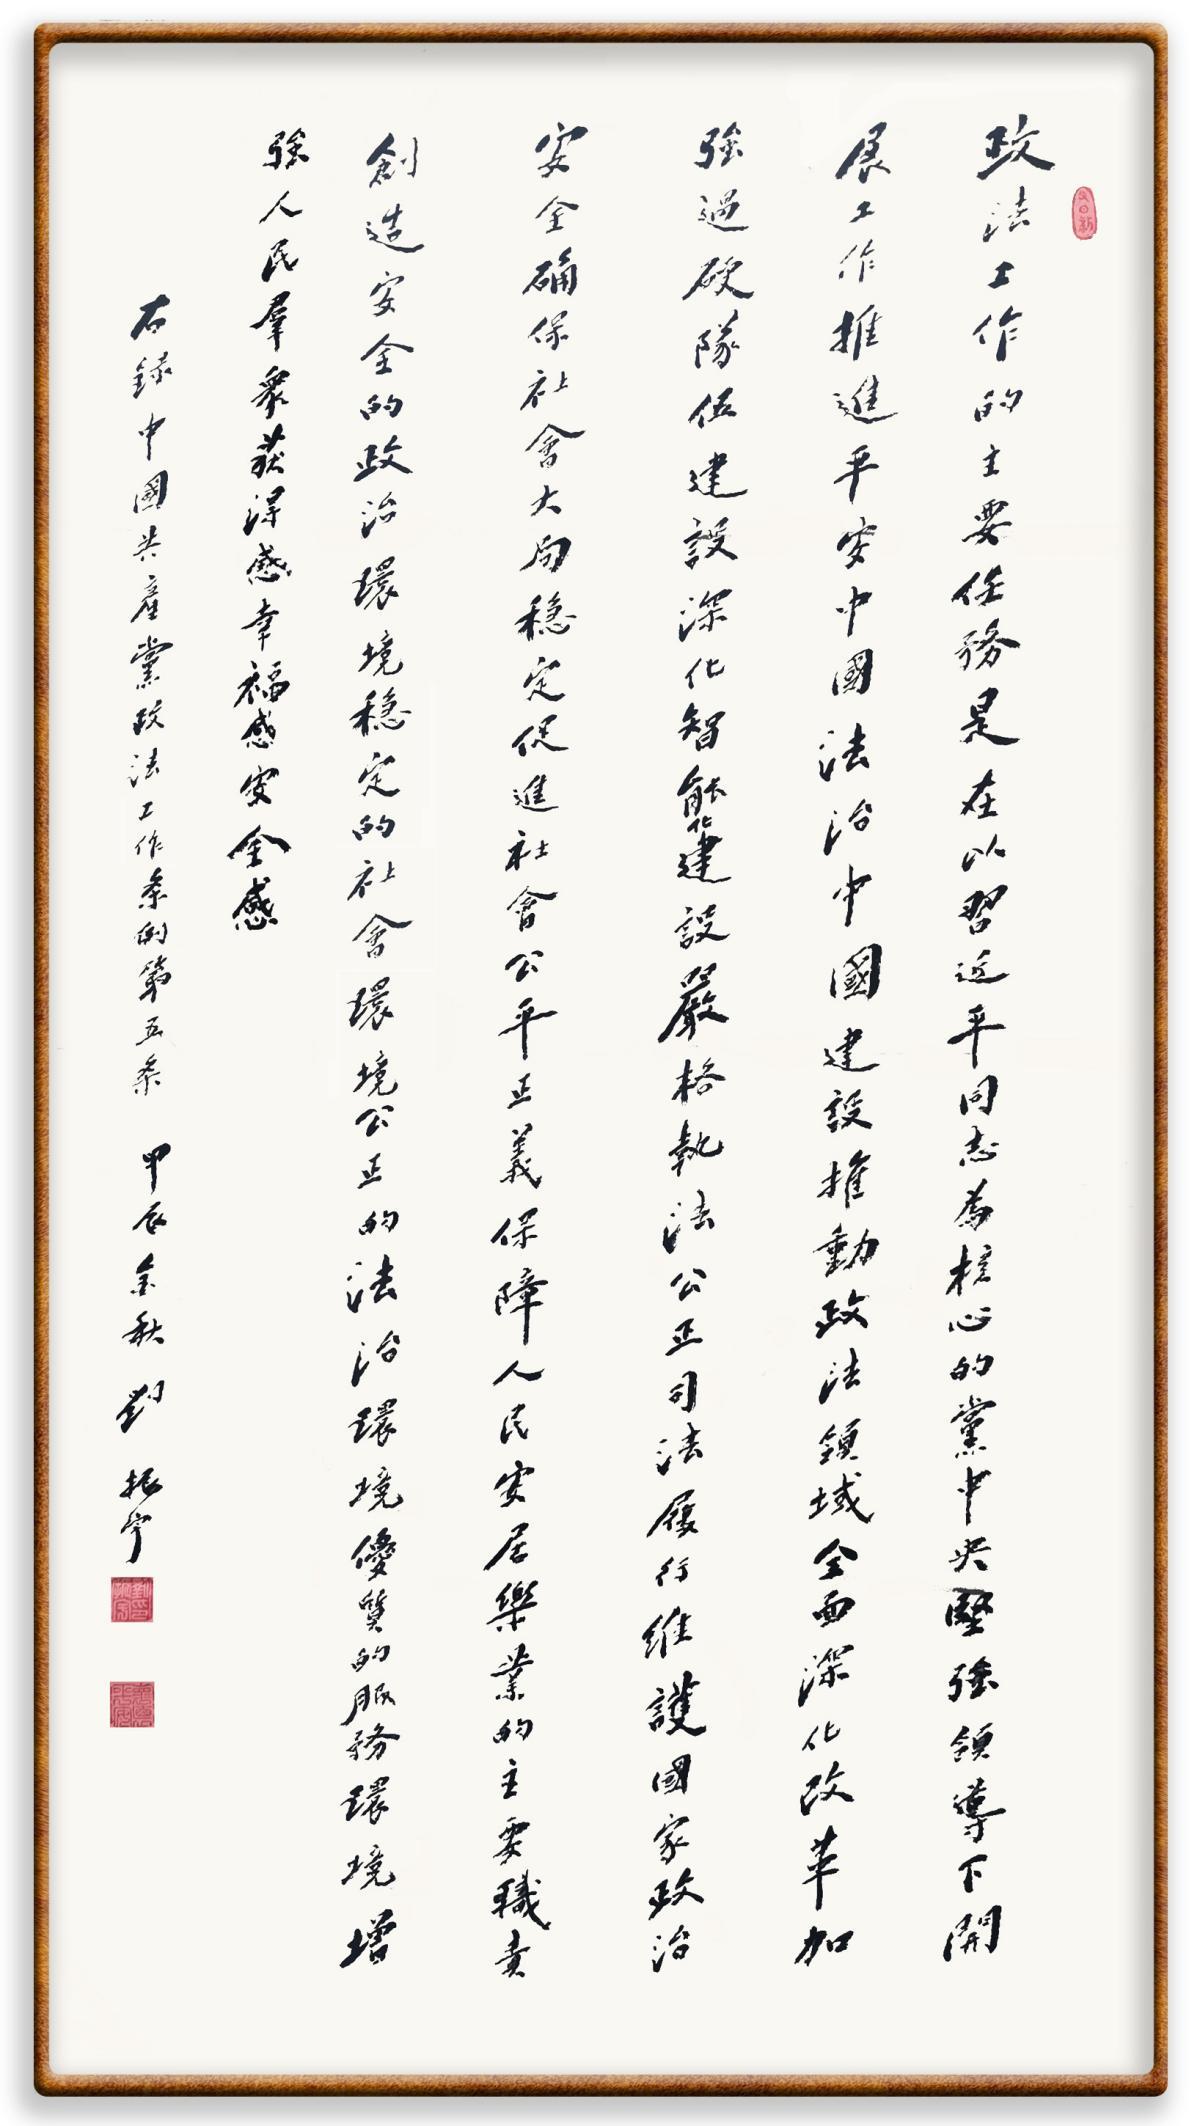 政法工作的主要任務是在以習近平同志為核心的黨中央堅強領導下開
展工作推進平安中國法治中國建設推動政法領域全面深化改革加
強過硬隊伍建設深化智能化建設嚴格執法公正司法履行維護國家政治
安全確保社會大局穩定促進社會公平正義保障人民安居樂業的主要職責
創造安全的政治環境穩定的社會環境公正的法治環境優質的服務環境增
強人民羣眾获得感幸福感安全感
右録中國共產黨政法工作条例第五条 甲辰金秋 劉振宇
日新